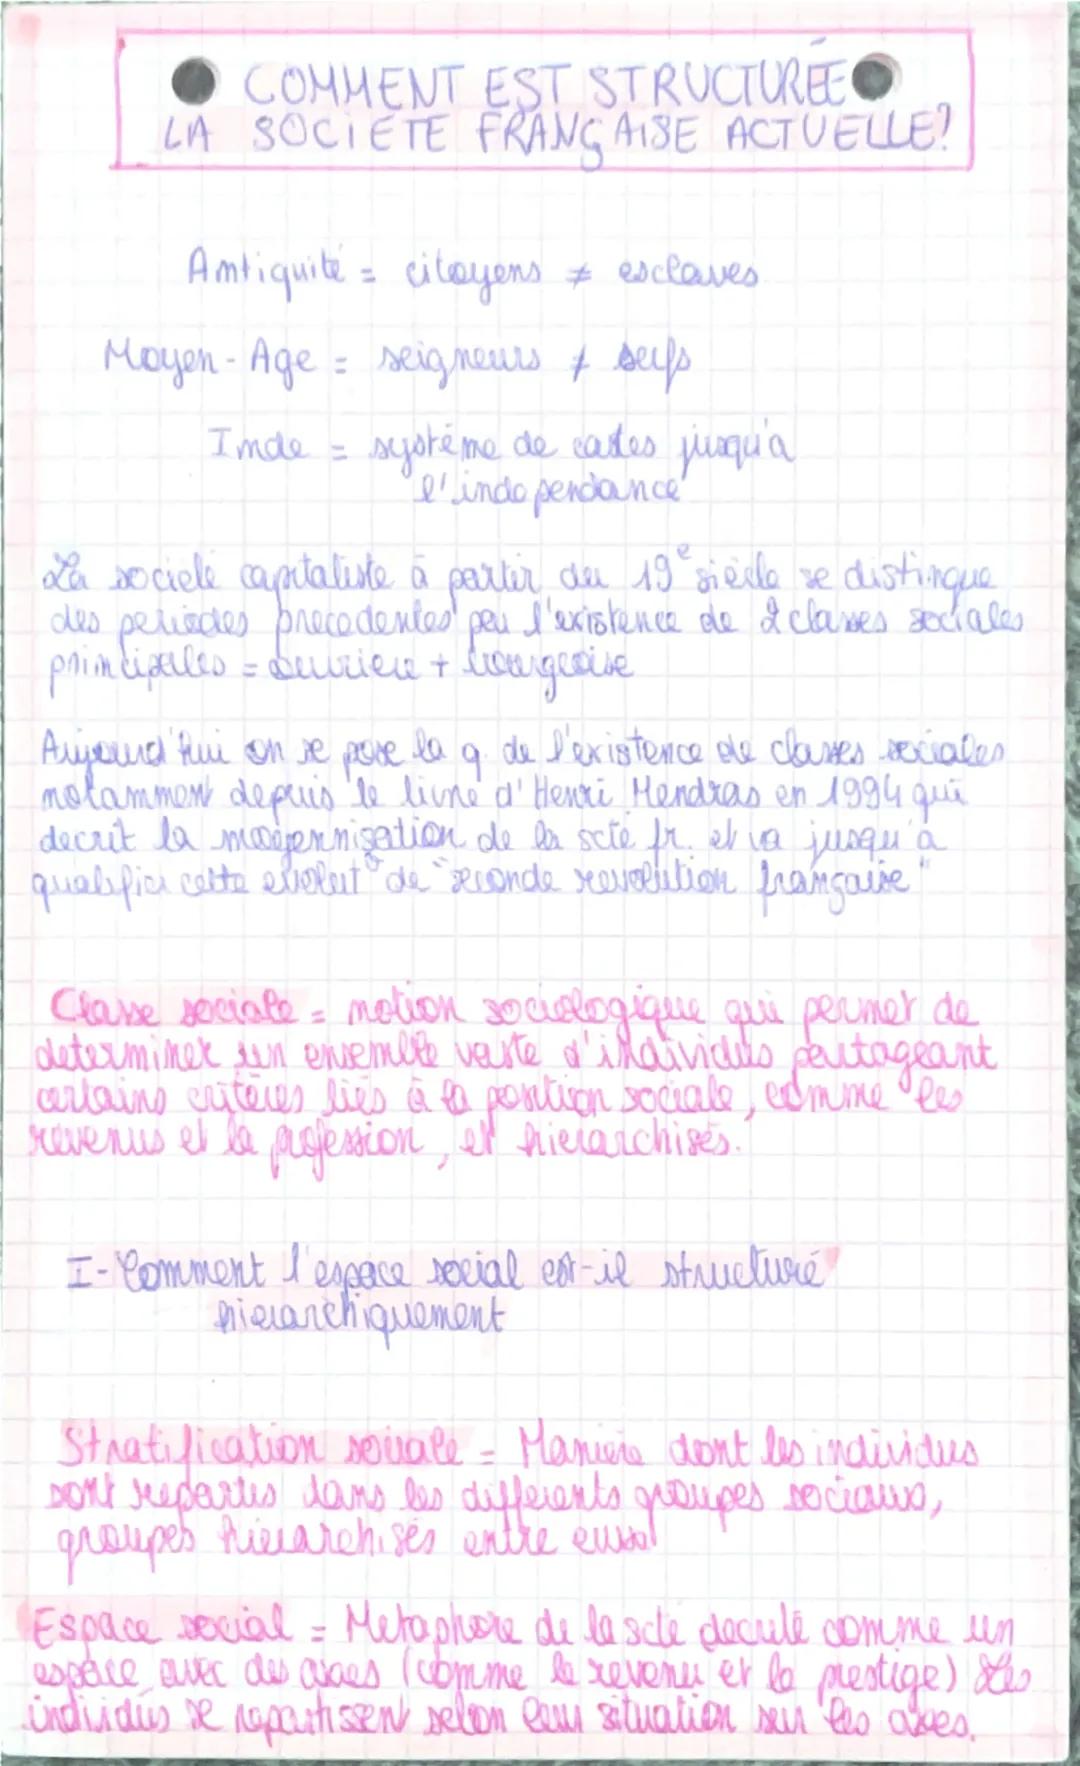 COMMENT EST STRUCTURÉE
LA SOCIETE FRANÇAISE ACTUELLE?
Antiquité = citoyens ≠ esclaves
Moyen-Age = seigneurs ≠ serfs
Inde = système de castes jusqu'a
l'independance
La societe capitaliste à partir du 19e siècle se distingue
des periodes precedentes par l'existence de 2 classes sociales
principales = ouvriere + bourgeoise
Aujourd'hui on se pose la q. de l'existence de classes sociales
notamment depuis le livre d'Henri Mendras en 1994 qui
decrit la moyennisation de la scté fr. et va jusqu'a
qualifier cette evolut° de "seconde revolution française"
Classe sociale = notion sociologique qui permet de
determiner un ensemble vaste d'individus partageant
certains critères liés à la position sociale, comme les
revenus et la profession, et hierarchisés.
I- Comment l'espace social est-il structuré
hierarchiquement
Stratification sociale = Maniere dont les individus
sont repartis dans les differents groupes sociaux,
groupes hierarchisés entre eux
Espace social = Metaphore de la scté decrite comme un
espace avec des axes (comme le revenu et le prestige) Les
individus se repartissent selon leur situation sur les axes.